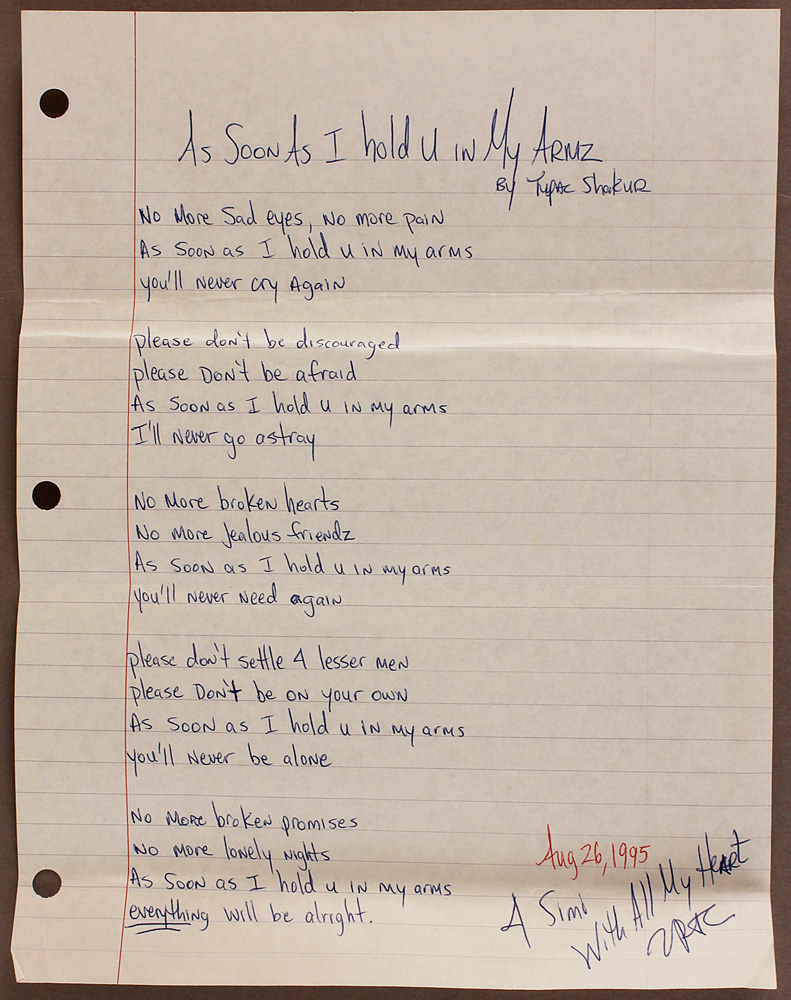 As Soon As I hold U in My Armz
By Tupac Shakur
No More Sad eyes, No more pain
As Soon as I hold u in my arms
you'll Never cry Again
please don't be discouraged
please Don't be afraid
As Soon as I hold u in my arms
I'll Never go astray
No More broken hearts
No more Jealous friendz
As Soon as I hold u in my arms
you'll Never Need again
please don't settle 4 lesser men
please Don't be on your own
As Soon as I hold u in my arms
you'll Never be alone
No More broken promises
No more lonely nights
As Soon as I hold u in my arms
everything will be alright.
Aug 26, 1995
4 Simi
With All My Heart
2PAC